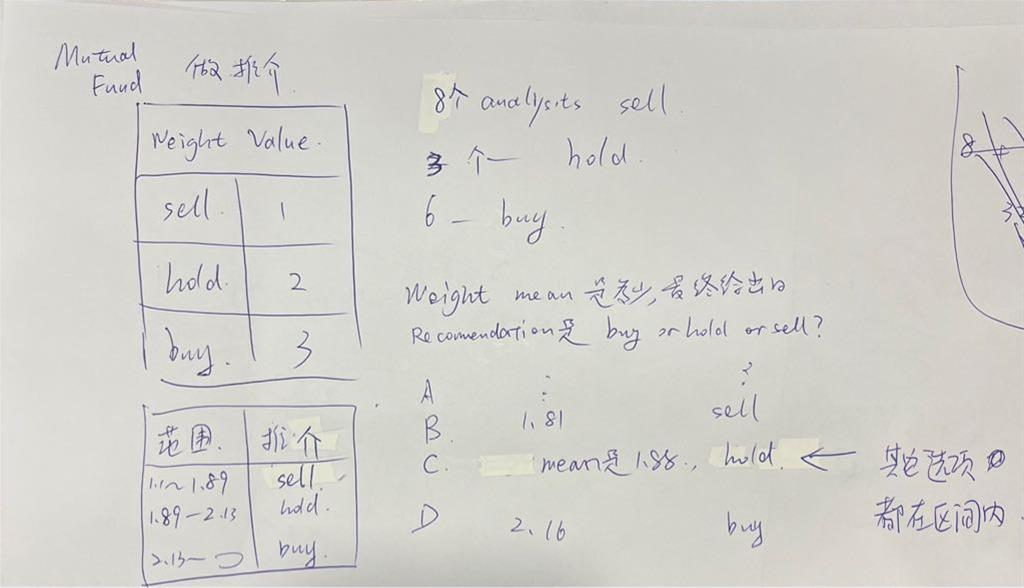 Mutual
Fund
做推介
Weight Value.
sell. 1
hold. 2
buy. 3
范围. 推介
1.1~1.89 sell.
1.89-2.13 hold.
2.13- buy.
8个 analysits sell.
3个一 hold.
6 — buy.
Weight mean 是多少,最终给出的
Recomendation是 buy or hold or sell?
A : ?
B. 1.81 sell
C. mean是1.88., hold. ← 其它选项
都在区间内.
D 2.16 buy
8
3